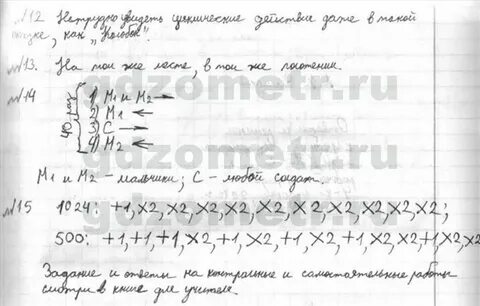 №12. Нетрудно увидеть циклические действие даже в такой
сказке, как „Колобок".
№13. На том же месте, в том же положении.
№14
40 раз
1) М1 и М2 →
2) М1 ←
3) С →
4) М2 ←
М1 и М2 – мальчики; С – любой солдат.
№15 1024: +1, ×2, ×2, ×2, ×2, ×2, ×2, ×2, ×2, ×2, ×2;
500: +1, +1, +1, ×2, +1, ×2, +1, ×2, +1, ×2, ×2, +1, ×2, ×2
Задание и ответы на контрольные и самостоятельные работы
смотри в книге для учителя.
gdzometr.ru
gdzometr.ru
gdzometr.ru